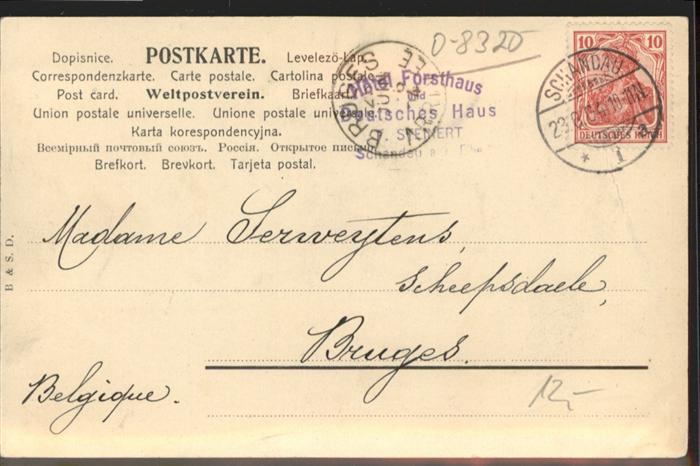 Dopisnice. POSTKARTE. Levelezö-Lap.
Correspondenzkarte. Carte postale. Cartolina postale.
Post card. Weltpostverein. Briefkaart.
Union postale universelle. Unione postale universale.
Karta korespondencyjna.
Всемірный почтовый союзъ. Россія. Открытое письмо.
Brefkort. Brevkort. Tarjeta postal.
0-8320
BRUGES
Hotel Forsthaus
und
Deutsches Haus
Schandau a. d. Elbe
10 10
DEUTSCHES REICH
SCHANDAU
* 1
B & S. D.
Madame Serweytens,
Scheepsdaele,
Bruges.
Belgique.
12,-